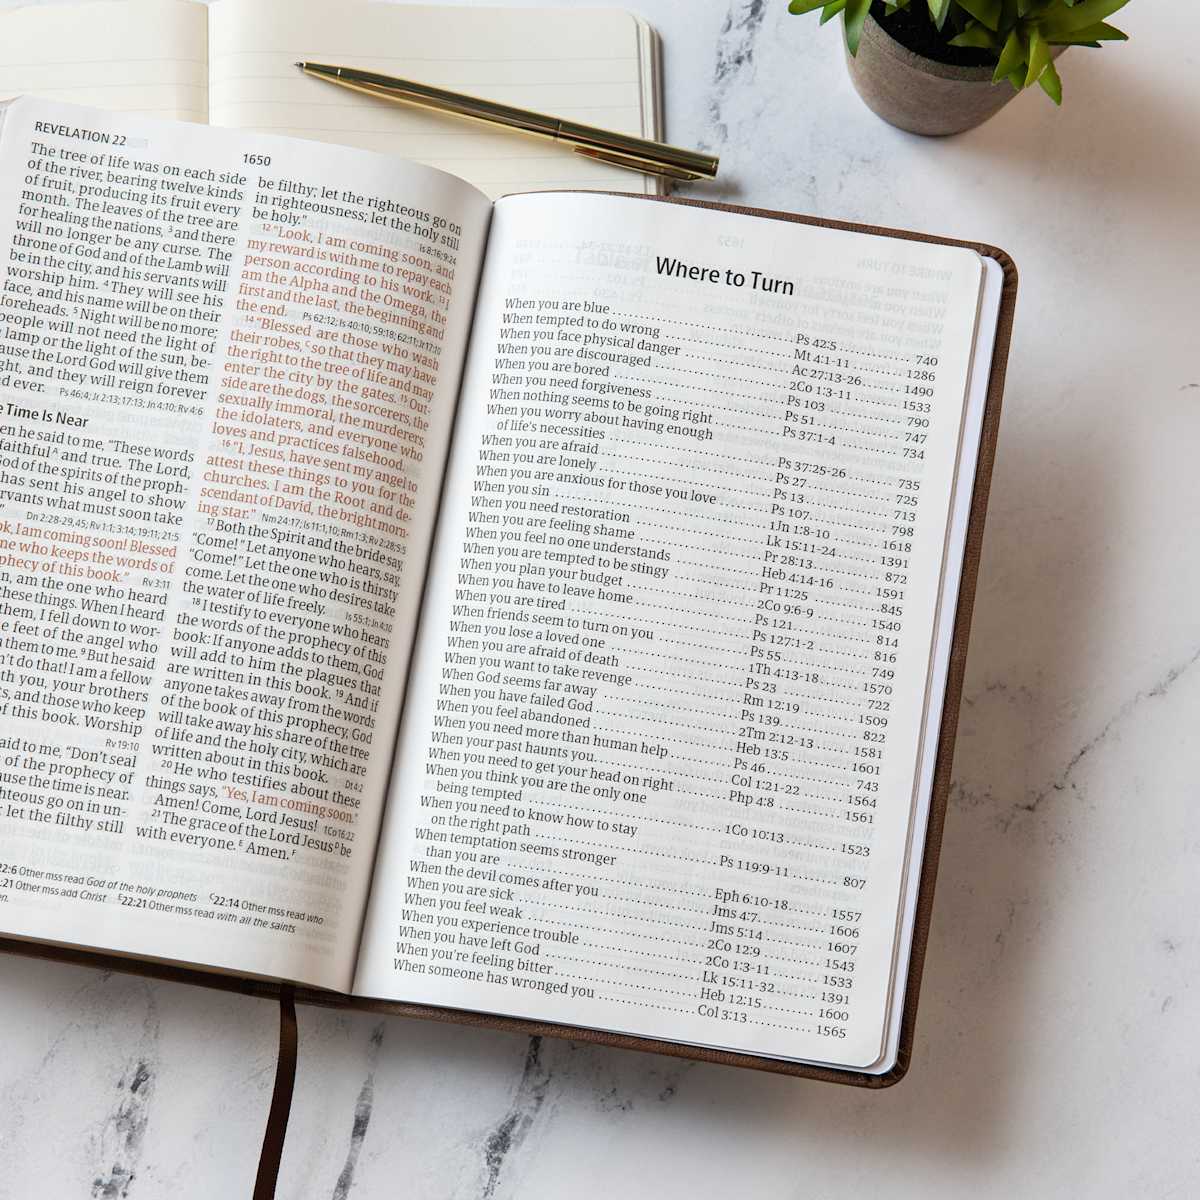 REVELATION 22
1650
The tree of life was on each side
of the river, bearing twelve kinds
of fruit, producing its fruit every
month. The leaves of the tree are
for healing the nations, 3 and there
will no longer be any curse. The
throne of God and of the Lamb will
be in the city, and his servants will
worship him. 4 They will see his
face, and his name will be on their
foreheads. 5 Night will be no more;
people will not need the light of
lamp or the light of the sun, be-
ause the Lord God will give them
ght, and they will reign forever
d ever. Ps 46:4; Jr 2:13; 17:13; Jn 4:10; Rv 4:6
e Time Is Near
en he said to me, "These words
faithful A and true. The Lord,
God of the spirits of the proph-
has sent his angel to show
rvants what must soon take
" Dn 2:28-29,45; Rv 1:1; 3:14; 19:11; 21:5
ok, I am coming soon! Blessed
ne who keeps the words of
phecy of this book." Rv 3:11
n, am the one who heard
these things. When I heard
them, I fell down to wor-
e feet of the angel who
them to me. 9 But he said
n't do that! I am a fellow
th you, your brothers
s, and those who keep
of this book. Worship
Rv 19:10
aid to me, "Don't seal
of the prophecy of
use the time is near.
hteous go on in un-
let the filthy still
be filthy; let the righteous go on
in righteousness; let the holy still
be holy." Is 8:16; 9:24
12 "Look, I am coming soon, and
my reward is with me to repay each
person according to his work. 13 I
am the Alpha and the Omega, the
first and the last, the beginning and
the end. Ps 62:12; Is 40:10; 59:18; 62:11; Jr 17:10
14 "Blessed are those who wash
their robes, C so that they may have
the right to the tree of life and may
enter the city by the gates. 15 Out-
side are the dogs, the sorcerers, the
sexually immoral, the murderers,
the idolaters, and everyone who
loves and practices falsehood.
16 "I, Jesus, have sent my angel to
attest these things to you for the
churches. I am the Root and de-
scendant of David, the bright morn-
ing star." Nm 24:17; Is 11:1,10; Rm 1:3; Rv 2:28; 5:5
17 Both the Spirit and the bride say,
"Come!" Let anyone who hears, say,
"Come!" Let the one who is thirsty
come. Let the one who desires take
the water of life freely. Is 55:1; Jn 4:10
18 I testify to everyone who hears
the words of the prophecy of this
book: If anyone adds to them, God
will add to him the plagues that
are written in this book. 19 And if
anyone takes away from the words
of the book of this prophecy, God
will take away his share of the tree
of life and the holy city, which are
written about in this book. Dt 4:2
20 He who testifies about these
things says, "Yes, I am coming soon."
Amen! Come, Lord Jesus! 1Co 16:22
21 The grace of the Lord Jesus D be
with everyone. E Amen. F
22:6 Other mss read God of the holy prophets C 22:14 Other mss read who
:21 Other mss add Christ E 22:21 Other mss read with all the saints
en.
Where to Turn
When you are blue ..... Ps 42:5 ..... 740
When tempted to do wrong ..... Mt 4:1-11 ..... 1286
When you face physical danger ..... Ac 27:13-26 ..... 1490
When you are discouraged ..... 2Co 1:3-11 ..... 1533
When you are bored ..... Ps 103 ..... 790
When you need forgiveness ..... Ps 51 ..... 747
When nothing seems to be going right ..... Ps 37:1-4 ..... 734
When you worry about having enough
of life's necessities ..... Ps 37:25-26 ..... 735
When you are afraid ..... Ps 27 ..... 725
When you are lonely ..... Ps 13 ..... 713
When you are anxious for those you love ..... Ps 107 ..... 798
When you sin ..... 1Jn 1:8-10 ..... 1618
When you need restoration ..... Lk 15:11-24 ..... 1391
When you are feeling shame ..... Pr 28:13 ..... 872
When you feel no one understands ..... Heb 4:14-16 ..... 1591
When you are tempted to be stingy ..... Pr 11:25 ..... 845
When you plan your budget ..... 2Co 9:6-9 ..... 1540
When you have to leave home ..... Ps 121 ..... 814
When you are tired ..... Ps 127:1-2 ..... 816
When friends seem to turn on you ..... Ps 55 ..... 749
When you lose a loved one ..... 1Th 4:13-18 ..... 1570
When you are afraid of death ..... Ps 23 ..... 722
When you want to take revenge ..... Rm 12:19 ..... 1509
When God seems far away ..... Ps 139 ..... 822
When you have failed God ..... 2Tm 2:12-13 ..... 1581
When you feel abandoned ..... Heb 13:5 ..... 1601
When you need more than human help ..... Ps 46 ..... 743
When your past haunts you ..... Col 1:21-22 ..... 1564
When you need to get your head on right ..... Php 4:8 ..... 1561
When you think you are the only one
being tempted ..... 1Co 10:13 ..... 1523
When you need to know how to stay
on the right path ..... Ps 119:9-11 ..... 807
When temptation seems stronger
than you are ..... Eph 6:10-18 ..... 1557
When the devil comes after you ..... Jms 4:7 ..... 1606
When you are sick ..... Jms 5:14 ..... 1607
When you feel weak ..... 2Co 12:9 ..... 1543
When you experience trouble ..... 2Co 1:3-11 ..... 1533
When you have left God ..... Lk 15:11-32 ..... 1391
When you're feeling bitter ..... Heb 12:15 ..... 1600
When someone has wronged you ..... Col 3:13 ..... 1565